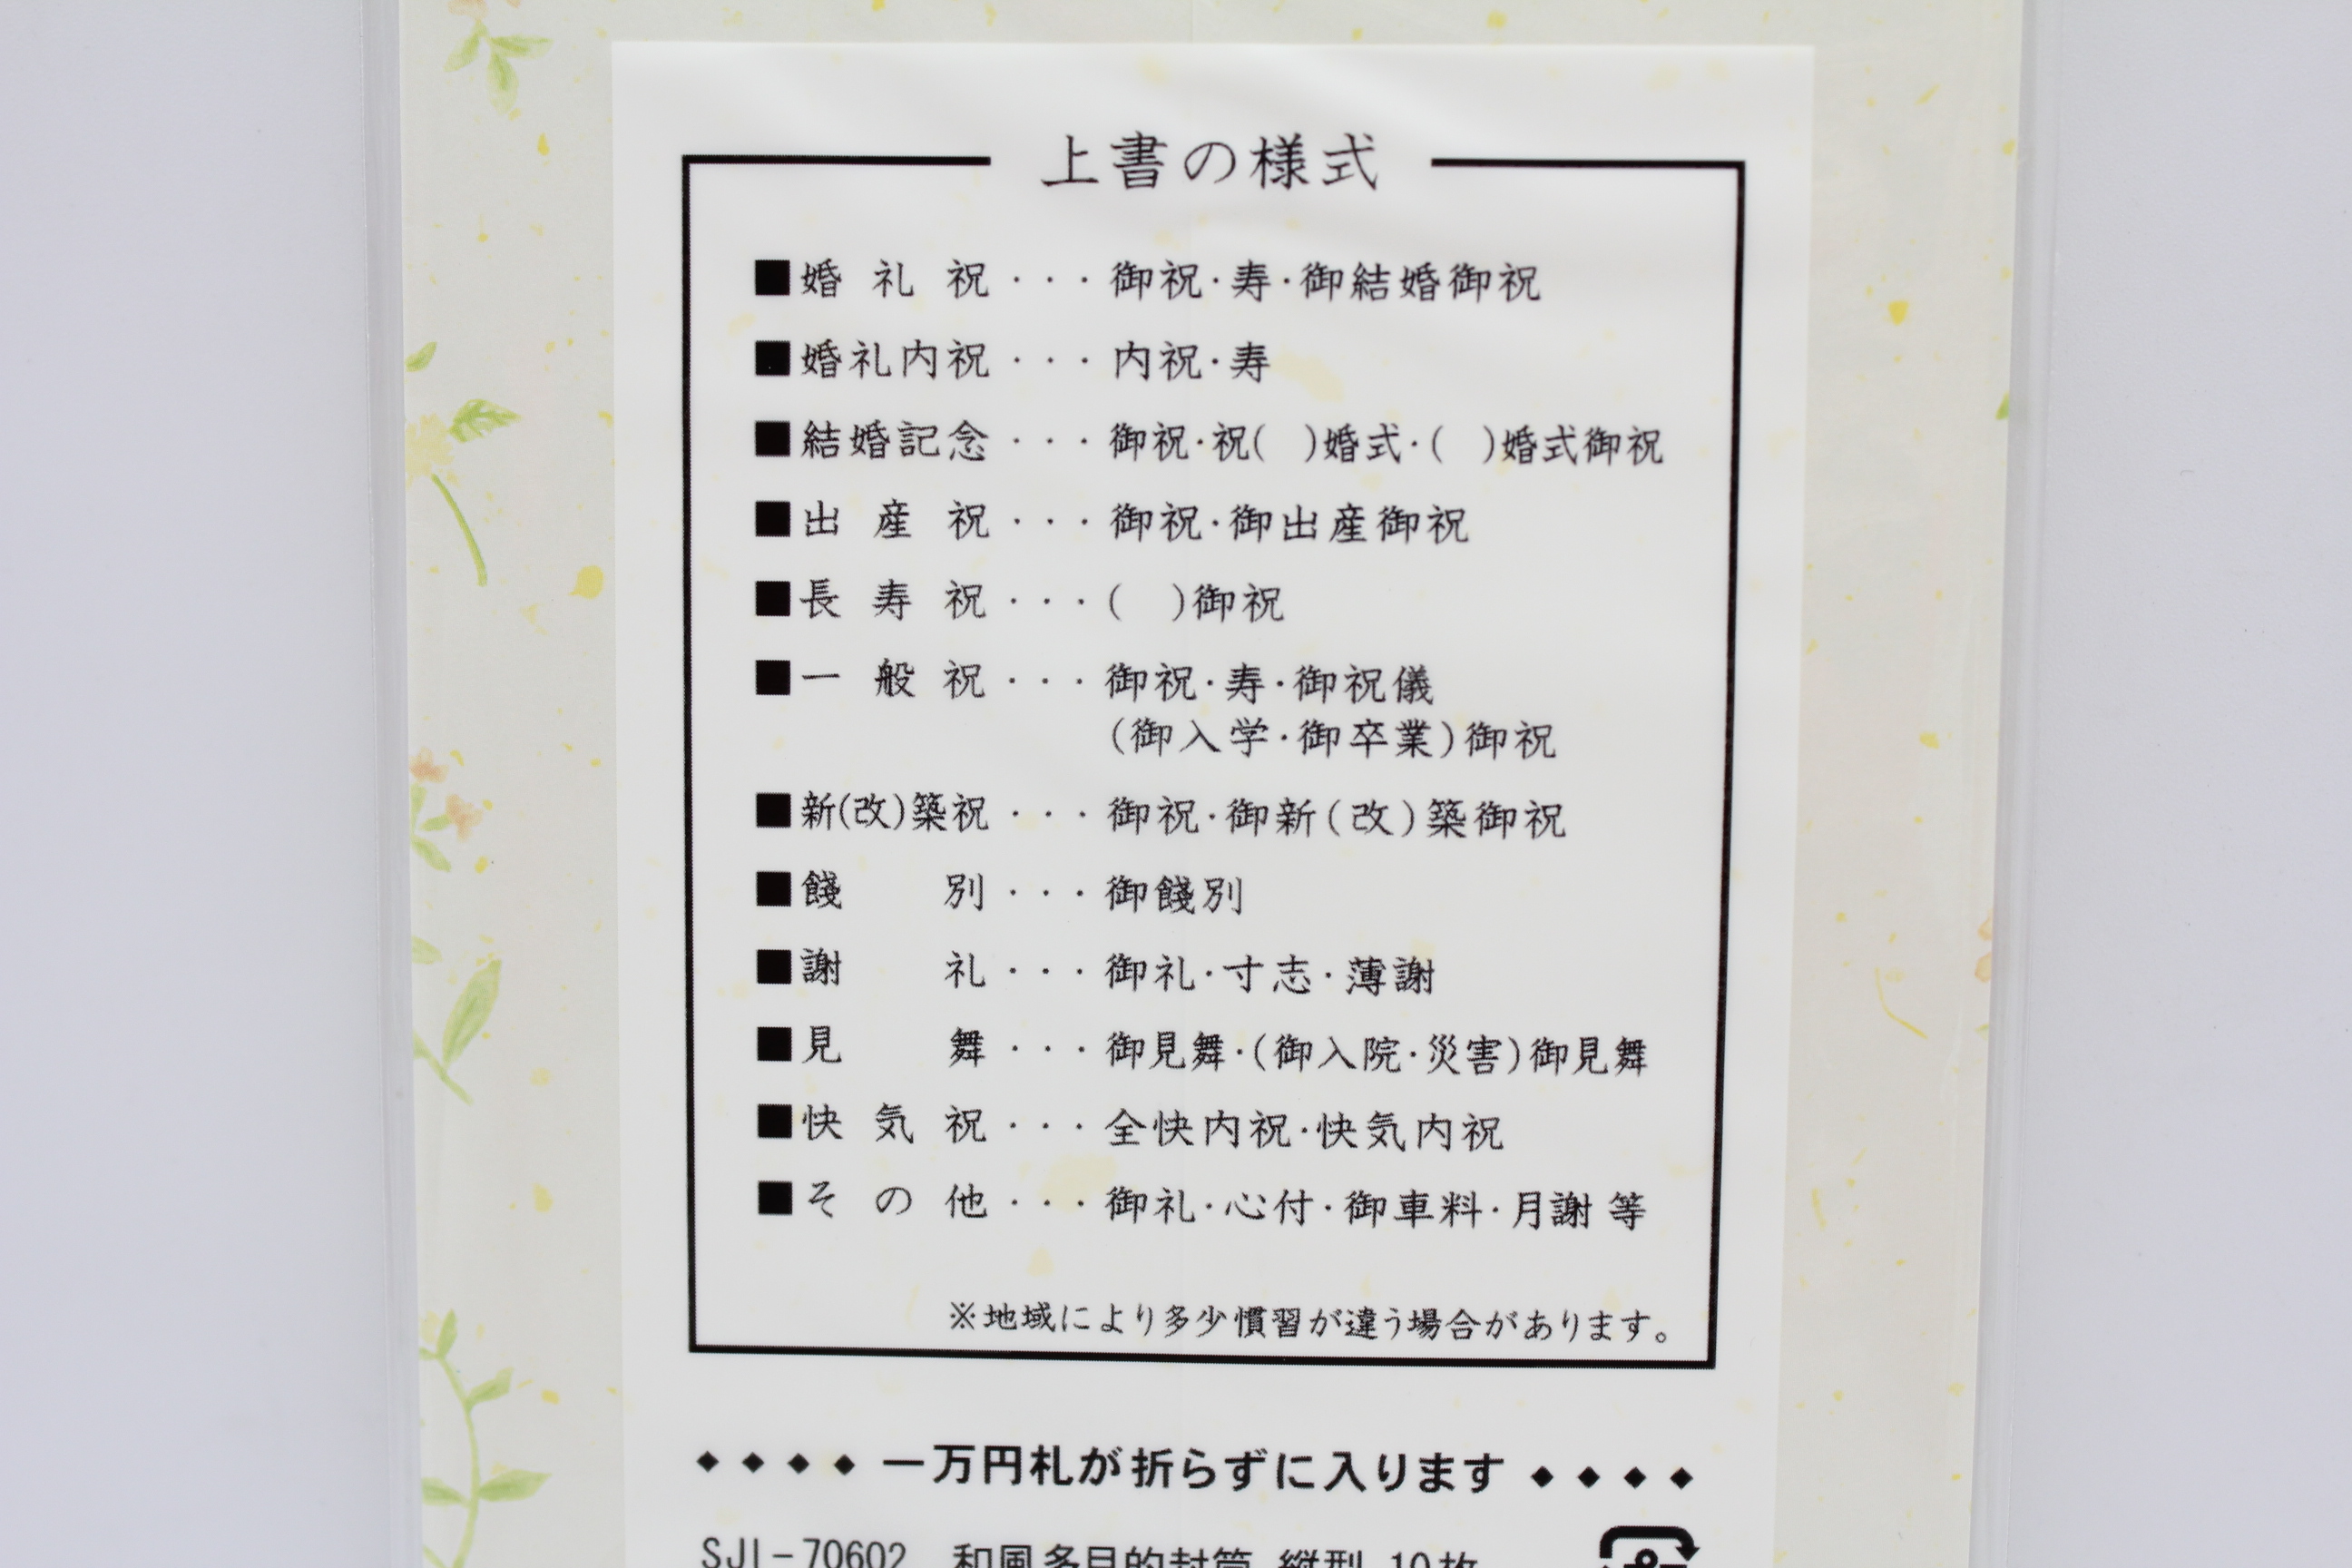 上書の様式
■婚礼祝・・・御祝・寿・御結婚御祝
■婚礼内祝・・・内祝・寿
■結婚記念・・・御祝・祝(　)婚式・(　)婚式御祝
■出産祝・・・御祝・御出産御祝
■長寿祝・・・(　)御祝
■一般祝・・・御祝・寿・御祝儀
(御入学・御卒業)御祝
■新(改)築祝・・・御祝・御新(改)築御祝
■餞別・・・御餞別
■謝礼・・・御礼・寸志・薄謝
■見舞・・・御見舞・(御入院・災害)御見舞
■快気祝・・・全快内祝・快気内祝
■その他・・・御礼・心付・御車料・月謝 等
※地域により多少慣習が違う場合があります。
◆◆◆◆ 一万円札が折らずに入ります ◆◆◆◆
SJI-70602　和風多目的封筒 縦型 10枚